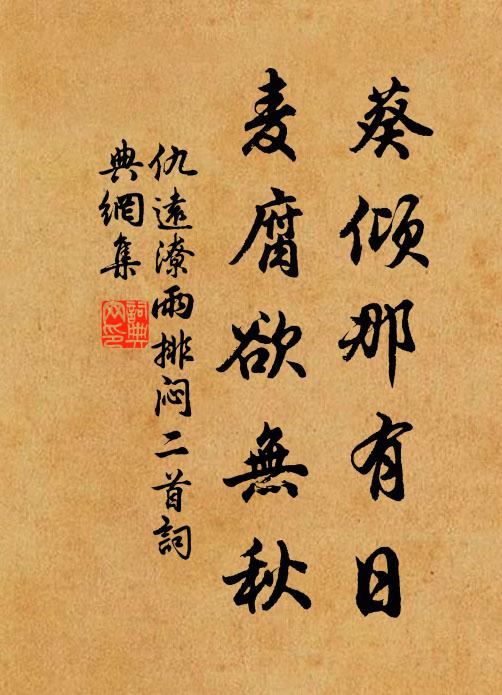 葵傾那有日
麦腐欲無秋
仇遠潦雨排闷二首詞
典網集
詞典
网印